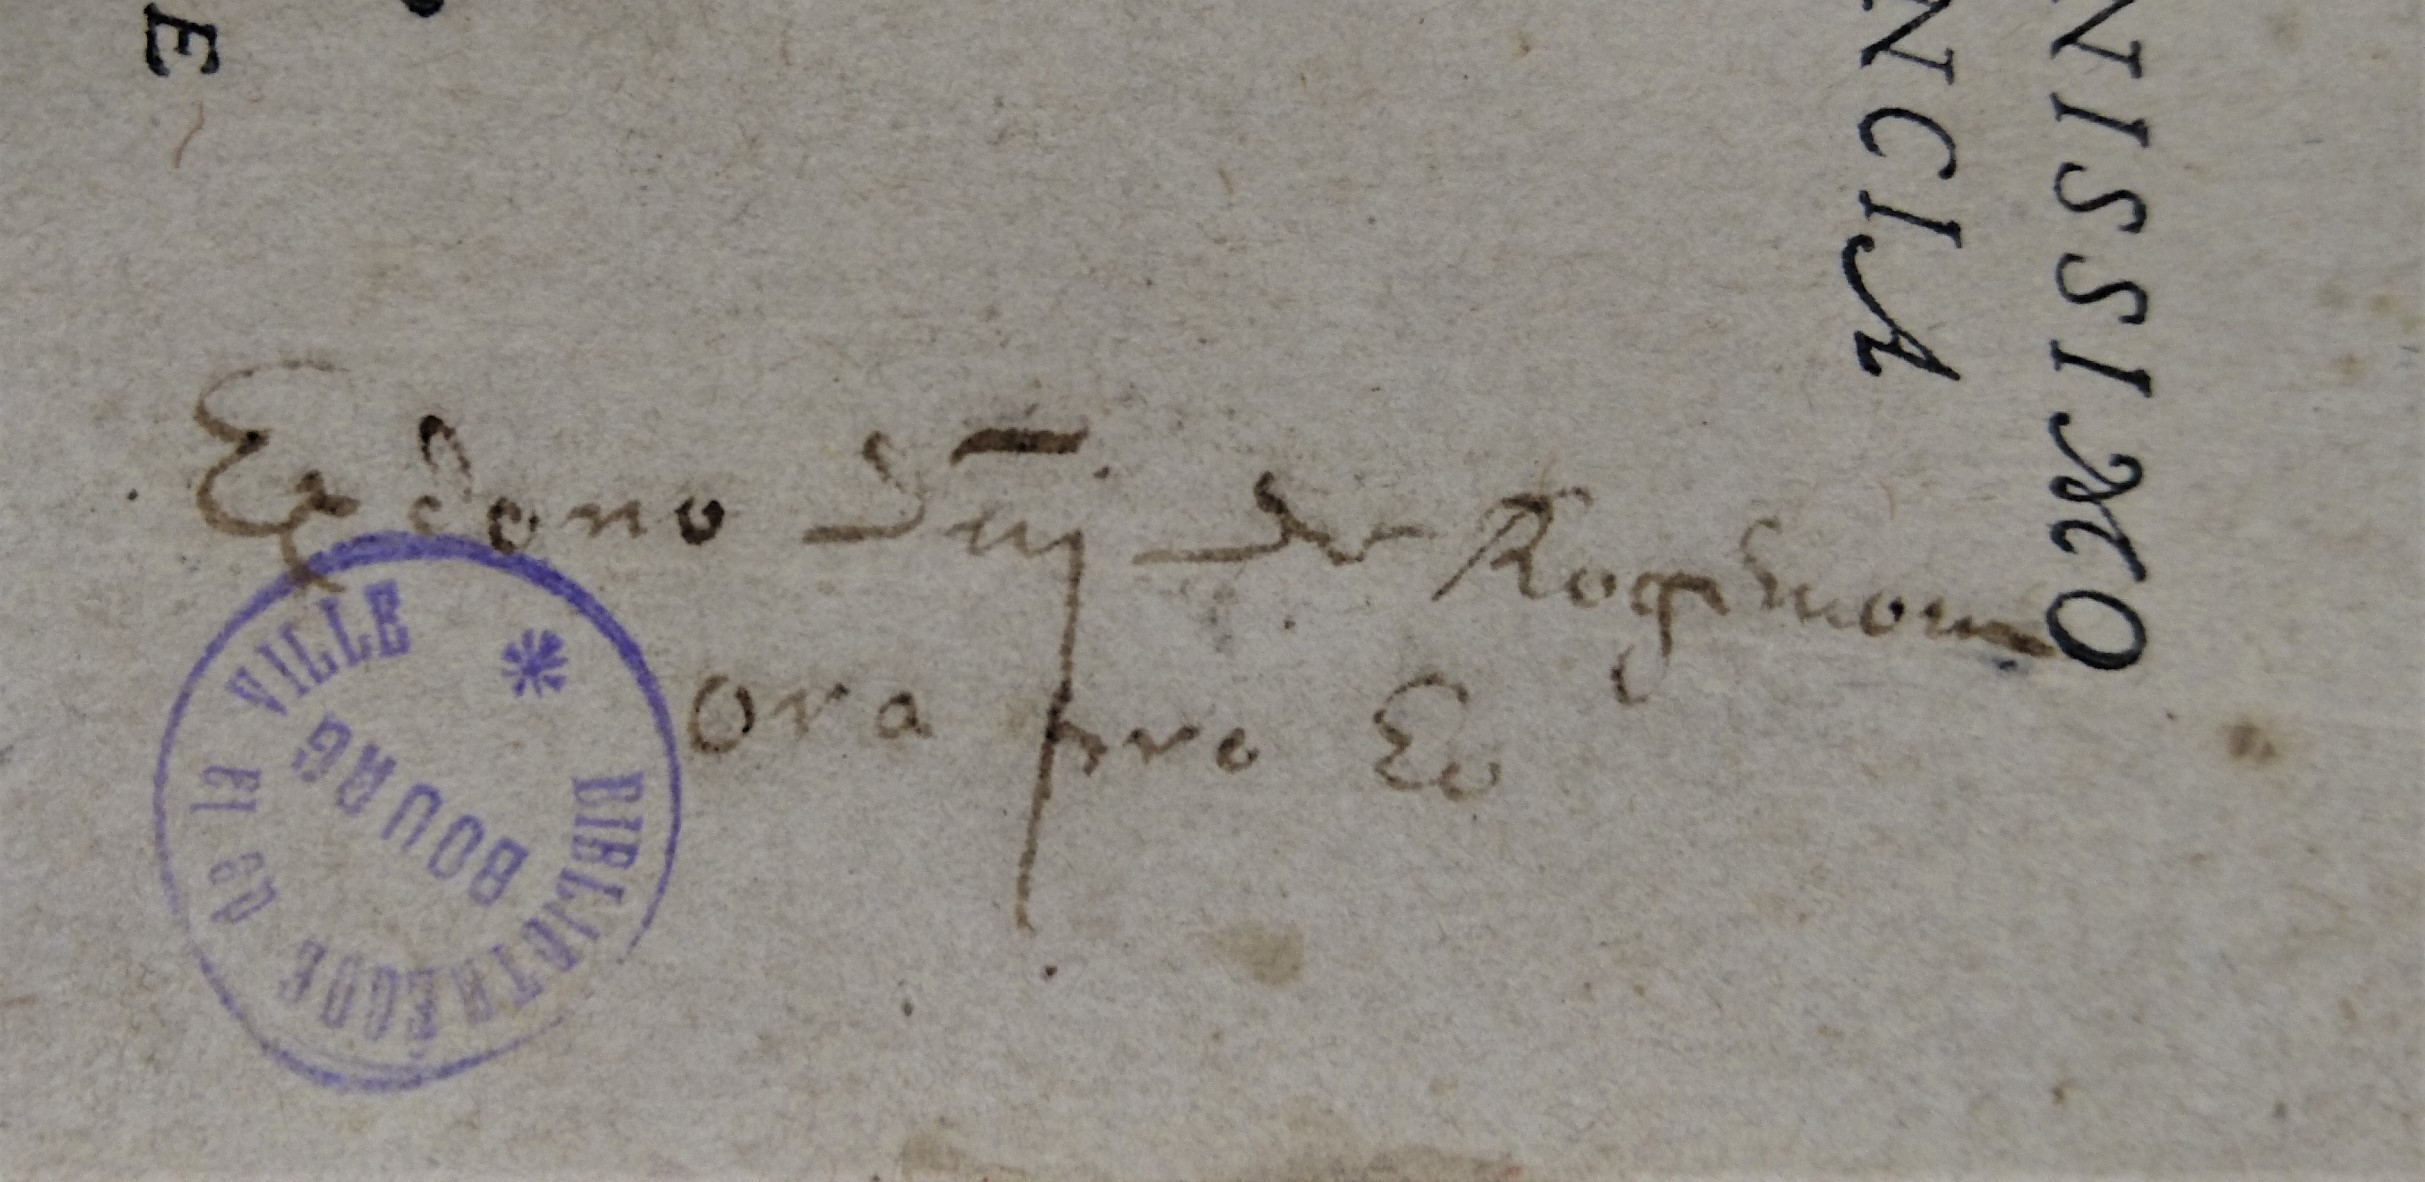 E
NCIA
NISSIMO
Ex dono Dnj de
ora pro Eo
BIBLIOTHEQUE de la VILLE
BOURG